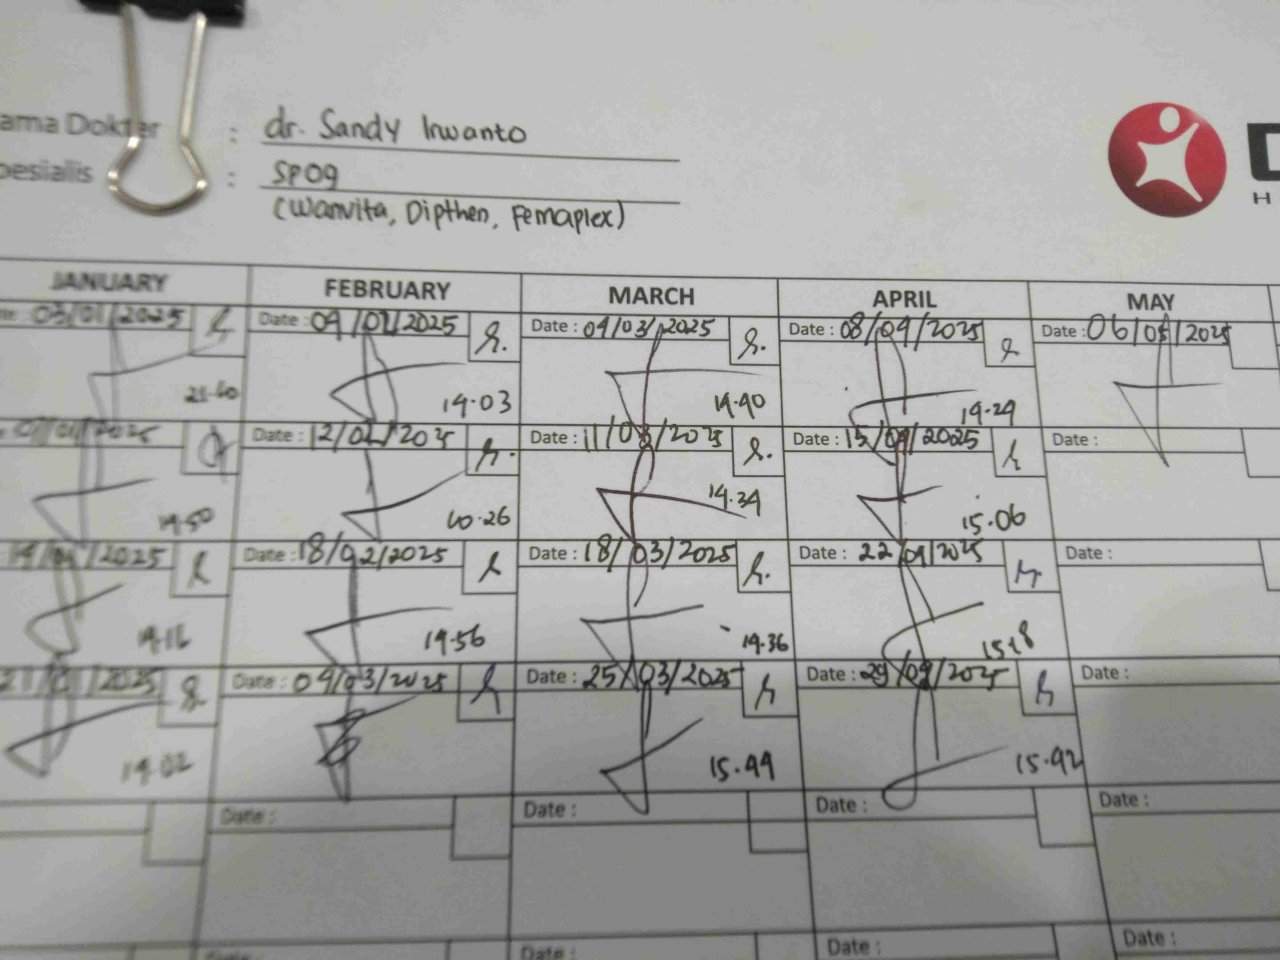 ama Dokter : dr. Sandy Irwanto
pesialis : SPOg
(Wanvita, Dipthen, Femaplex)
D
H
JANUARY FEBRUARY MARCH APRIL MAY
03/01/2025 Date : 04/02/2025 Date : 04/03/2025 Date : 08/04/2025 Date : 06/05/2025
14.03 14.40 14.29
2025 Date : 12/02/2025 Date : 11/03/2025 Date : 15/04/2025 Date :
14.50 10.26 14.34 15.06
14/01/2025 Date : 18/02/2025 Date : 18/03/2025 Date : 22/04/2025 Date :
14.16 14.56 14.36 15.18
21/01/2025 Date : 04/03/2025 Date : 25/03/2025 Date : 29/04/2025 Date :
14.02 15.44 15.42
Date : Date : Date : Date :
Date : Date : Date :